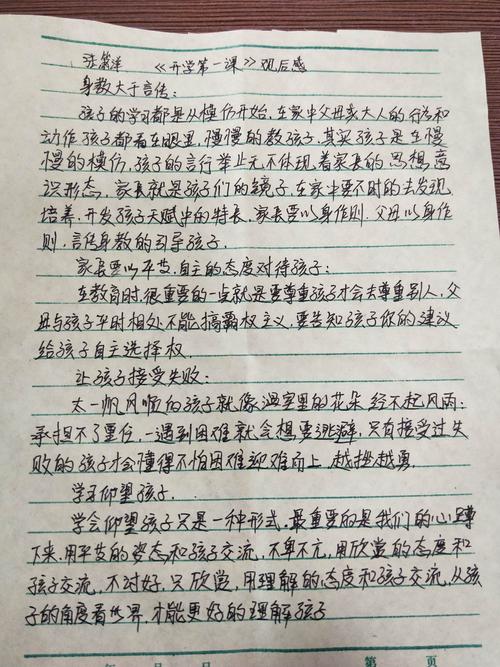 张 洋 《开学第一课》观后感
身教大于言传：
孩子的学习都是从模仿开始，在家中父母亲大人的行为和
动作，孩子都看在眼里，慢慢的教孩子，其实孩子是在慢
慢的模仿，孩子的言行举止无不体现着家长的思想，意
识形态，家长就是孩子们的镜子，在家中要不时的去发现，
培养，开发孩子天赋中的特长，家长要以身作则，父母以身作
则，言传身教的引导孩子，
家长要以平等，自主的态度对待孩子：
在教育时，很重要的一点就是要尊重孩子才会去尊重别人，父
母与孩子平时相处不能搞霸权主义，要告知孩子你的建议
给孩子自主选择权，
让孩子接受失败：
太一帆风顺的孩子就像温室里的花朵，经不起风雨：
承担不了重任，一遇到困难就会想要逃避，只有接受过失
败的孩子才会懂得不怕困难，迎难而上，越挫越勇，
学习仰望孩子，
学会仰望孩子只是一种形式，最重要的是我们的心蹲
下来，用平等的姿态和孩子交流，不卑不亢，用欣赏的态度和
孩子交流，不讨好，只欣赏，用理解的态度和孩子交流，从孩
子的角度看世界，才能更好的理解孩子
年 月 日 第 页